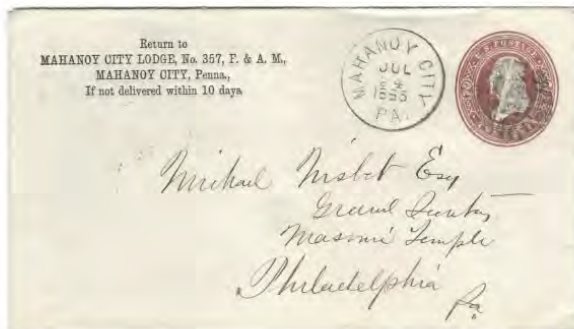 Return to
MAHANOY CITY LODGE, No. 357, F. & A. M.,
MAHANOY CITY, Penna,,
If not delivered within 10 days
MAHANOY CITY
JUL
24
PA.
U.S. POSTAGE
Michael Nisbet Esq
Grand
Masonic Temple
Philadelphia
Pa.